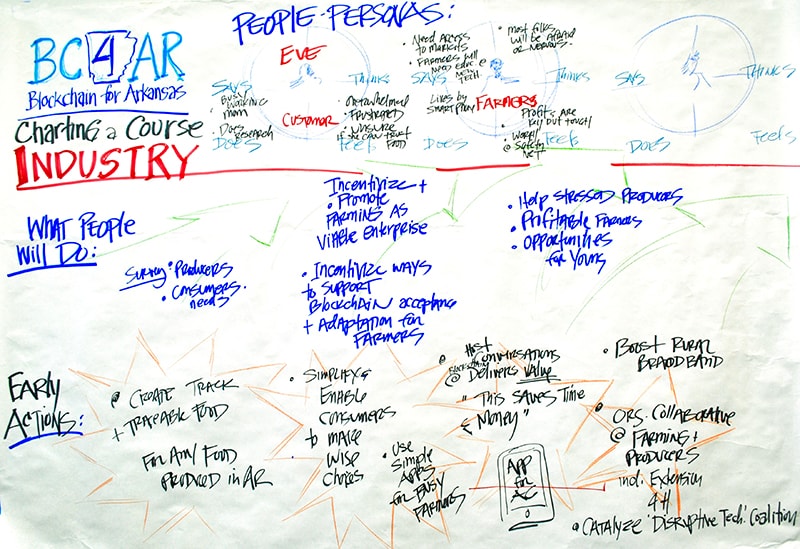 PEOPLE PERSONAS:
BC4AR
Blockchain for Arkansas
Charting a Course
INDUSTRY
EVE
SAYS
THINKS
• BUSY/
WORKING
MOM
• Does
RESEARCH
CUSTOMER
• Overwhelmed
• FRUSTRATED
• UNSURE
if she can TRUST
FOOD
DOES
FEELS
• Need Access
to markets
• FARMERS will
need educ @
new tech.
• most folks
will be afraid
or nervous.
SAYS
THINKS
Lives by
smart phone
FARMERS
• Profits are
key but tough!
• Worry
@ Safety
NET
DOES
FEELS
SAYS
THINKS
DOES
Feels
WHAT PEOPLE
WILL DO:
Survey • Producers
• Consumers
needs
Incentivize +
• Promote
FARMING AS
VIABLE ENTERPRISE
• Incentivize WAYS
to SUPPORT
BlockCHAIN acceptance
+ Adaptation for
FARMERS
• Help Stressed PRODUCERS
• Profitable FARMERS
• Opportunities
for Young
EARLY
ACTIONS:
• CREATE TRACK
+ TRACEABLE FOOD
For ANY FOOD
PRODUCED in AR
• SIMPLIFY &
ENABLE
CONSUMERS
to MAKE
WISE
CHOICES
• USE
Simple
Apps
for BUSY
FARMERS
• Host
Conversations
@ Blockchain
Delivers VALUE
"This SAVES Time
& Money"
APP
for
AG
• BOOST RURAL
BROADBAND
• ORG. COLLABORATIVE
@ FARMING +
PRODUCERS
incl. Extension
4H
• CATALYZE 'DISRUPTIVE TECH' COALITION